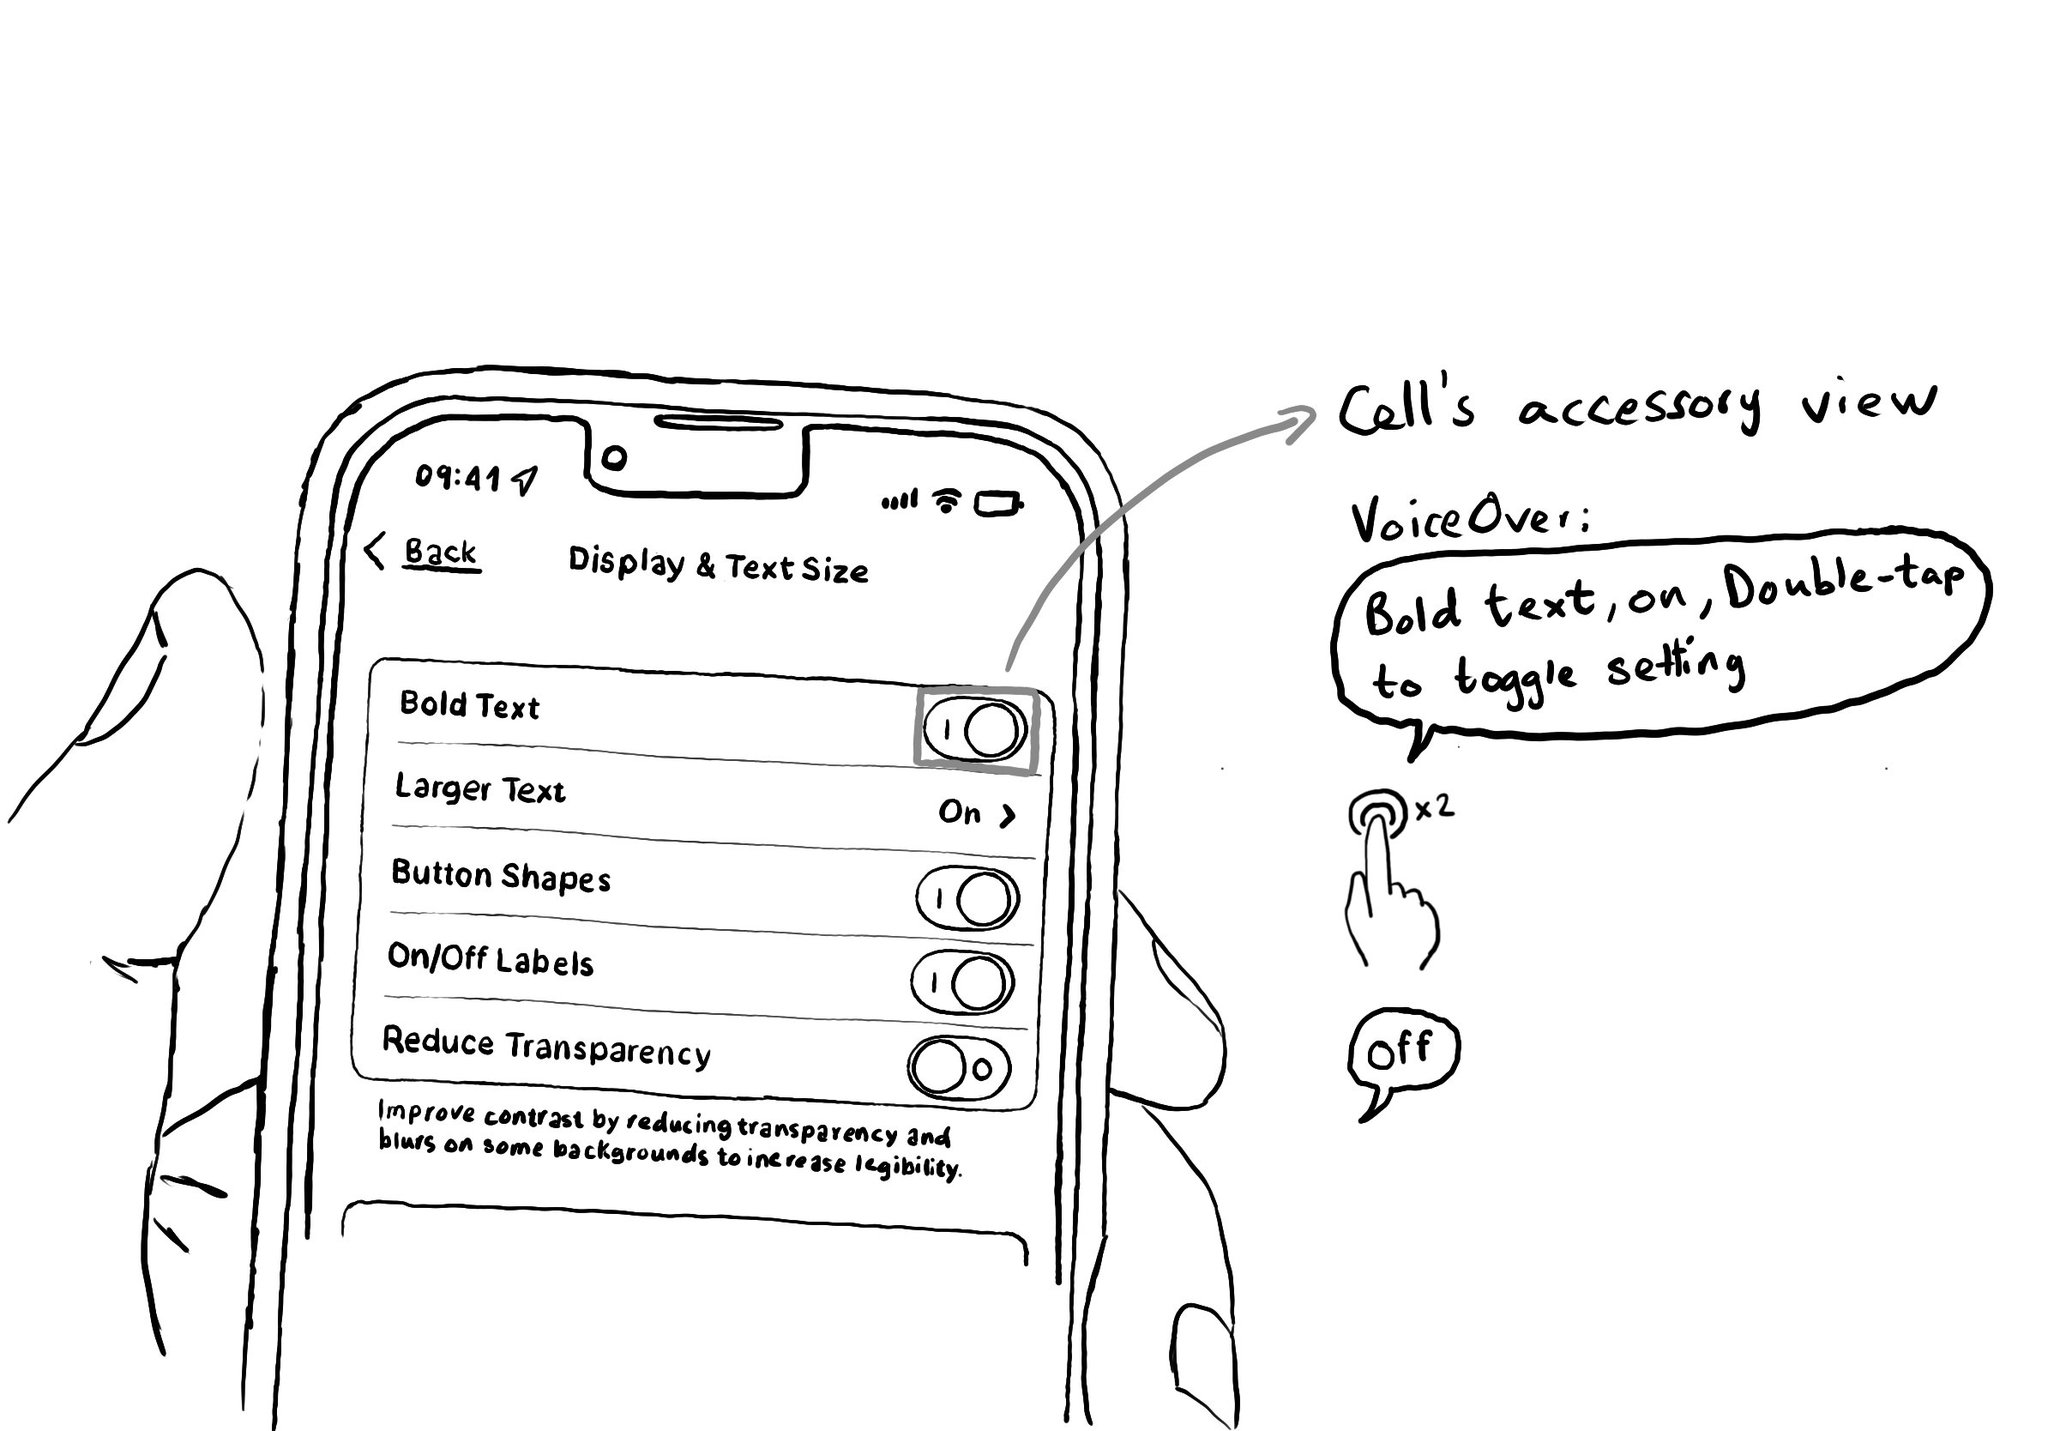 09:41
Back
Display & Text Size
Bold Text
Larger Text
On
Button Shapes
On/Off Labels
Reduce Transparency
Improve contrast by reducing transparency and
blurs on some backgrounds to increase legibility.
Cell's accessory view
VoiceOver:
Bold text, on, Double-tap
to toggle setting
x2
Off